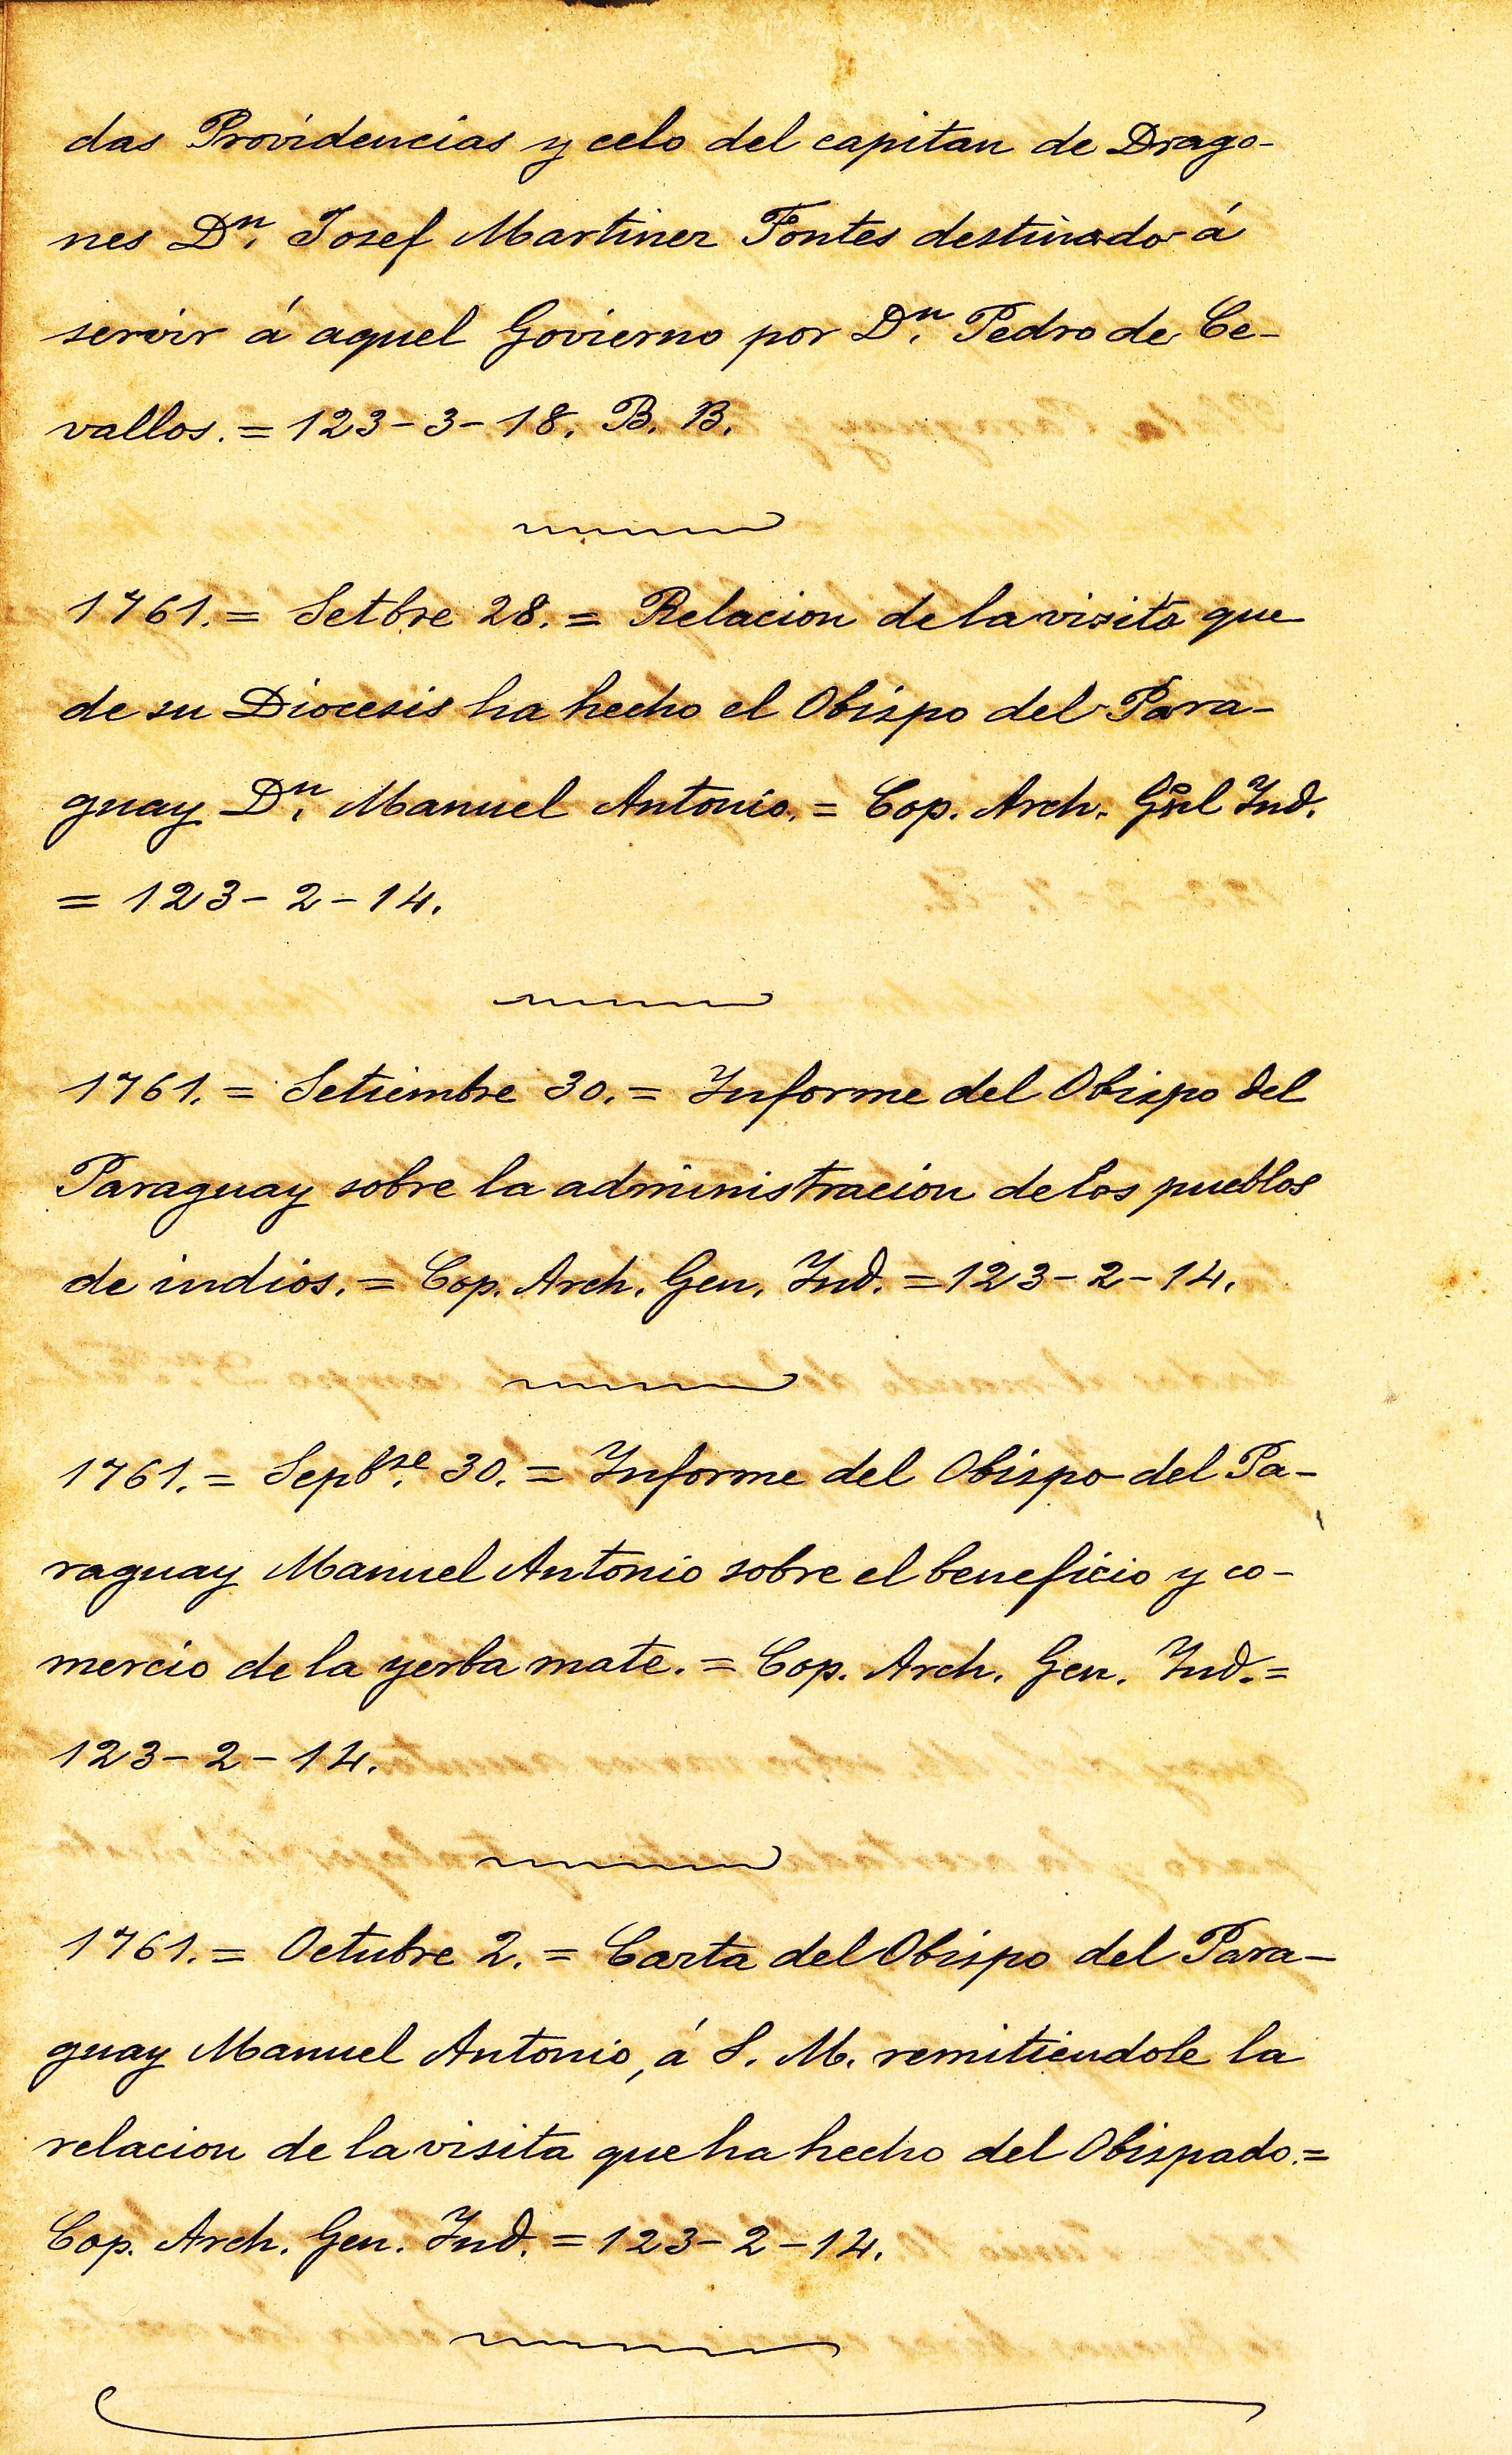 das Providencias y celo del capitan de Drago-
nes Dn. Josef Martinez Fontes destinado á
servir á aquel Govierno por Dn. Pedro de Ce-
vallos. = 123-3-18. B. B.
1761. = Setbre 28. = Relacion de la visita que
de su Diocesis ha hecho el Obispo del Para-
guay Dn. Manuel Antonio. = Cop. Arch. Gñl Ind.
= 123-2-14.
1761. = Setiembre 30. = Informe del Obispo del
Paraguay sobre la administracion de los pueblos
de indios. = Cop. Arch. Gen. Ind. = 123-2-14.
1761. = Sepbre. 30. = Informe del Obispo del Pa-
raguay Manuel Antonio sobre el beneficio y co-
mercio de la yerba mate. = Cop. Arch. Gen. Ind. =
123-2-14.
1761. = Octubre 2. = Carta del Obispo del Para-
guay Manuel Antonio, á S. M. remitiendole la
relacion de la visita que ha hecho del Obispado. =
Cop. Arch. Gen. Ind. = 123-2-14.